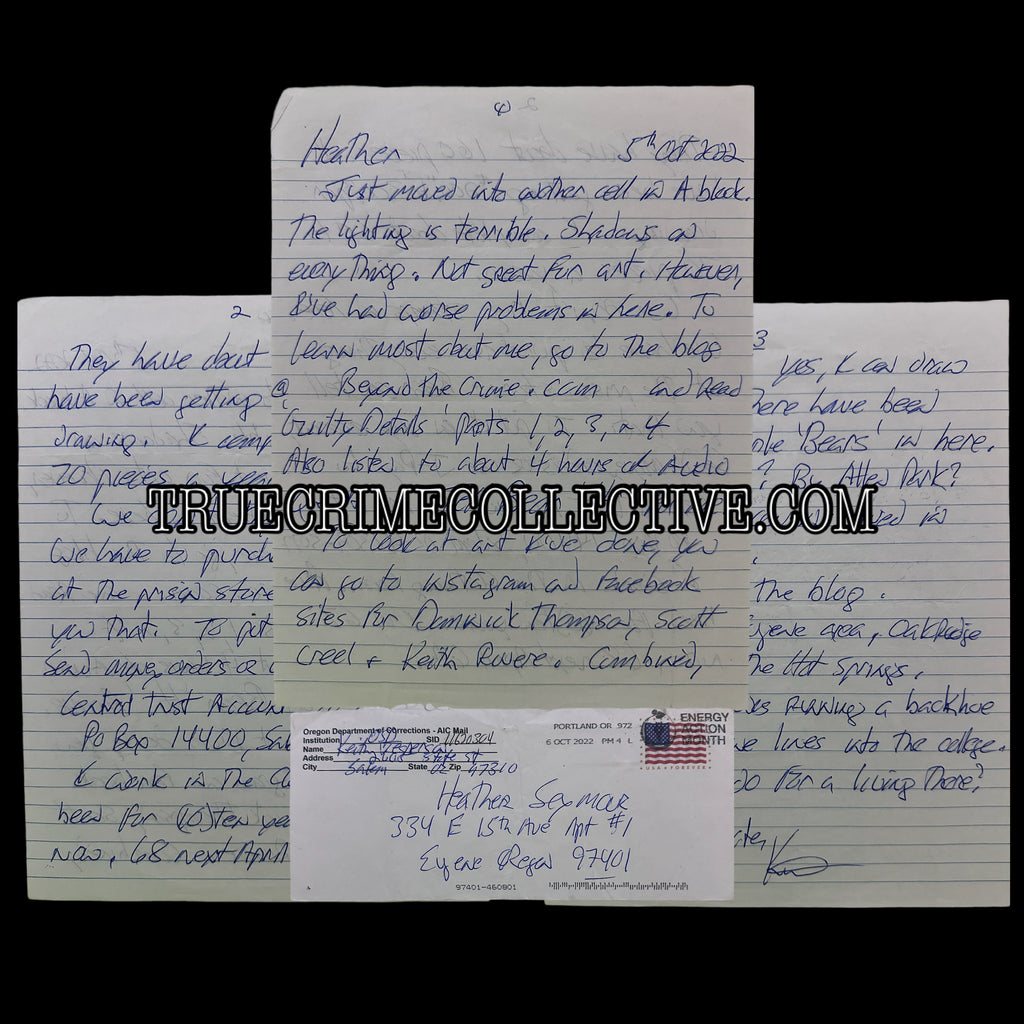 Heather 5th Oct 2022
Just moved into another cell in A block.
The lighting is terrible. Shadows on
everything. Not great for art. However,
I've had worse problems in here. To
learn most about me, go to the blog
@ Beyond The Crime . com and read
Guilty Details' parts 1, 2, 3, 4
Also listen to about 4 hours of Audio
To look at art I've done, you
can go to instagram and facebook
sites for Dominick Thompson, Scott
Creel + Keith Rovere. Combined,
2
They have about
have been getting
drawing. I comp
70 pieces a year
We
We have to purch
at the prison store
you that. To put
Send money orders or c
Central Trust Accoun
Po Box 14400, Sa
I work in the
been for (10) ten yea
now, 68 next April
3
yes, I can draw
here have been
ple 'Bears' in here.
? By Alton Park?
ved in
the blog.
gene area, Oakridge
The Hot Springs.
as running a backhoe
ve lines into the college.
do for a living there?
TRUECRIMECOLLECTIVE.COM
Oregon Department of Corrections - AIC Mail
Institution OSP SID 11620304
Name Keith Jesperson
Address 2605 State St
City Salem State OR Zip 97310
PORTLAND OR 972
6 OCT 2022 PM 4 L
ENERGY
ACTION
MONTH
USA FOREVER
Heather Seymour
334 E 15th Ave Apt #1
Eugene Oregon 97401
97401-460801